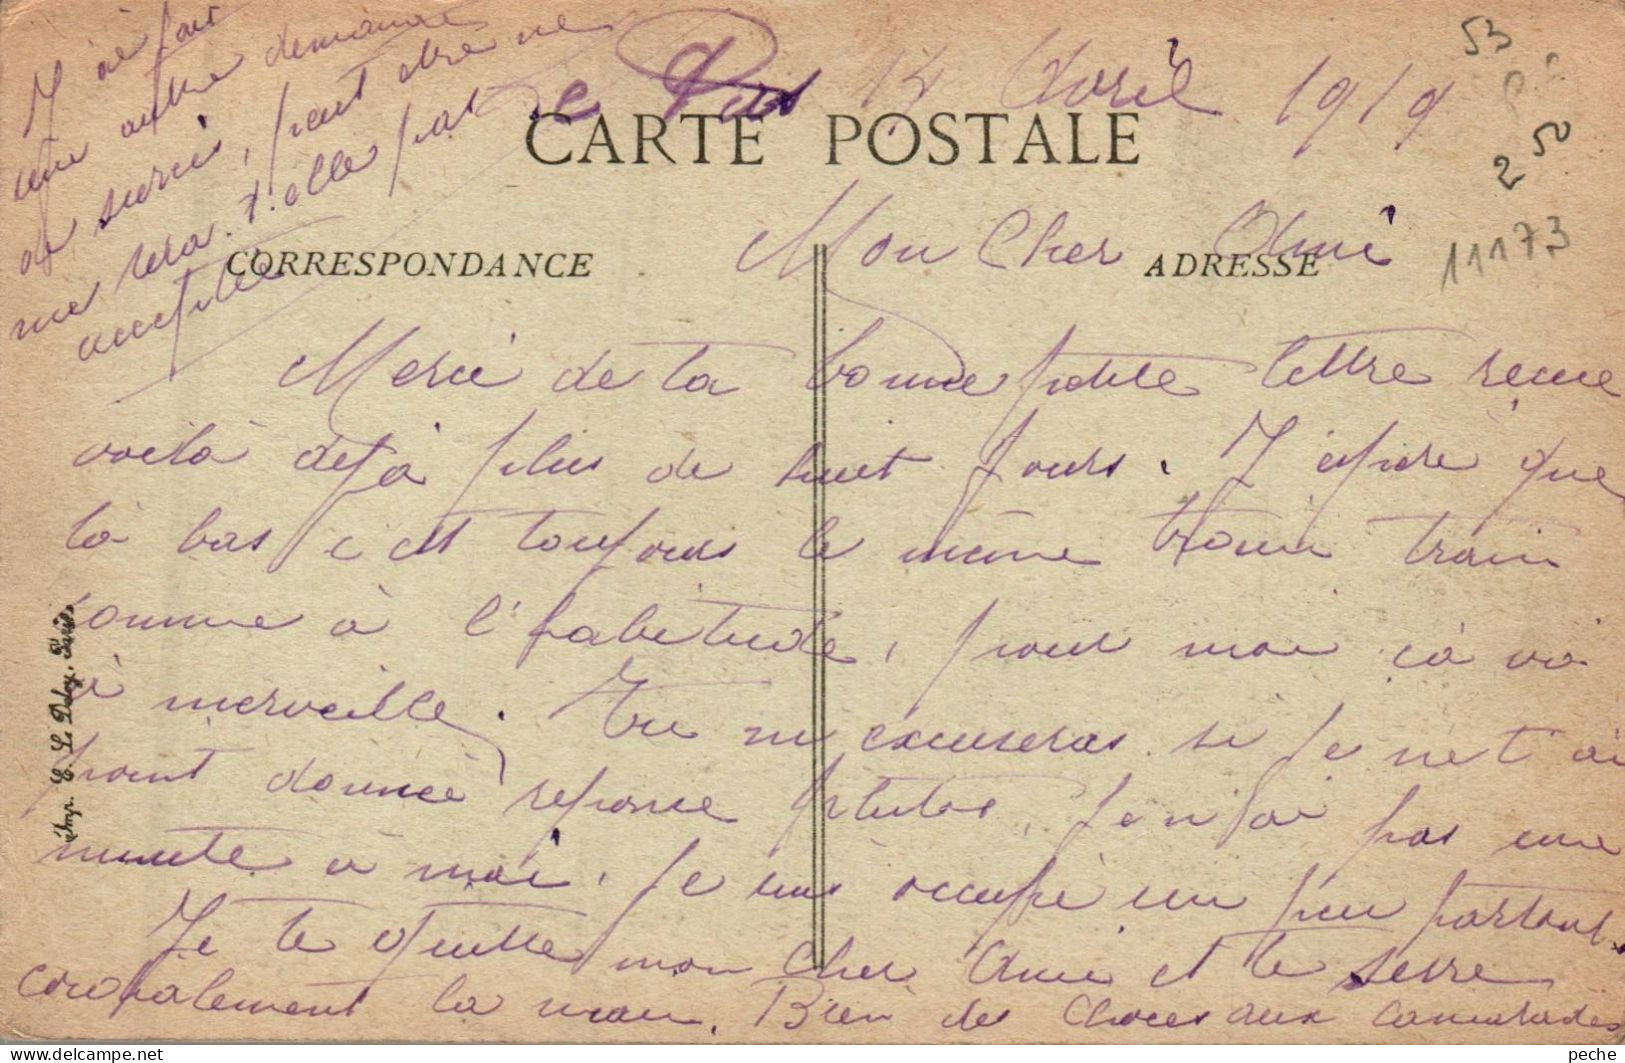 J'ai fait
une autre demande
de sursis, peut etre ne
me sera-t-elle pas
acceptée
14 Avril 1919
53
2 50
11173
CARTE POSTALE
CORRESPONDANCE
ADRESSE
Mon Cher Ami
Merci de ta bonne petite lettre recue
voilà dejà plus de huit jours. J'espère que
là bas c'est toujours le même train
comme à l'habitude, pour moi cà va
à merveille. Tu m'excuseras si je ne t'ai
point donnée reponse plutot, je n'ai pas une
minute à moi, je suis occupé un peu partout.
Je te quitte mon Cher Ami et te serre
cordialement la main. Bien des Choses aux Camarades
Imp. E. Le Deley, Paris
peche